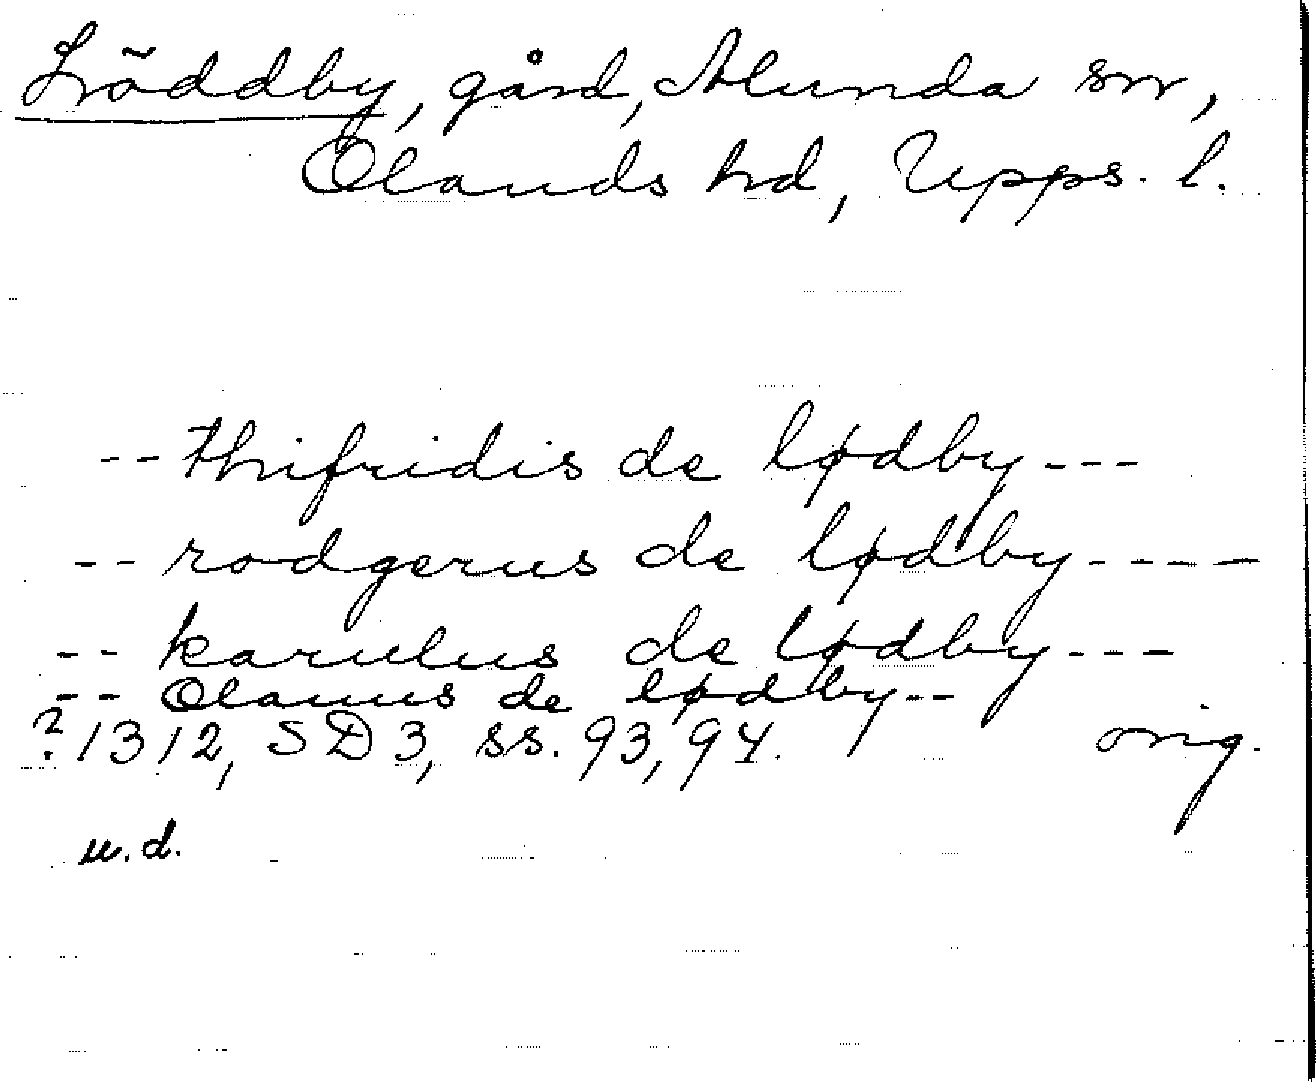 Löddby, gård, Alunda sn,
Olands hd, Upps. l.
-- thifridis de lødby ---
-- rodgerus de lødby ----
-- karulus de lødby ---
-- Olauus de lødby --
? 1312, SD 3, ss. 93, 94. orig.
u.d.